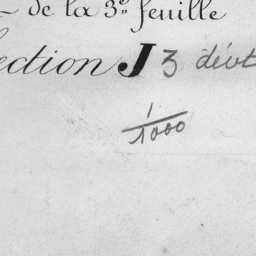 de la 3e feuille
ection J 3 dévt
1/1000